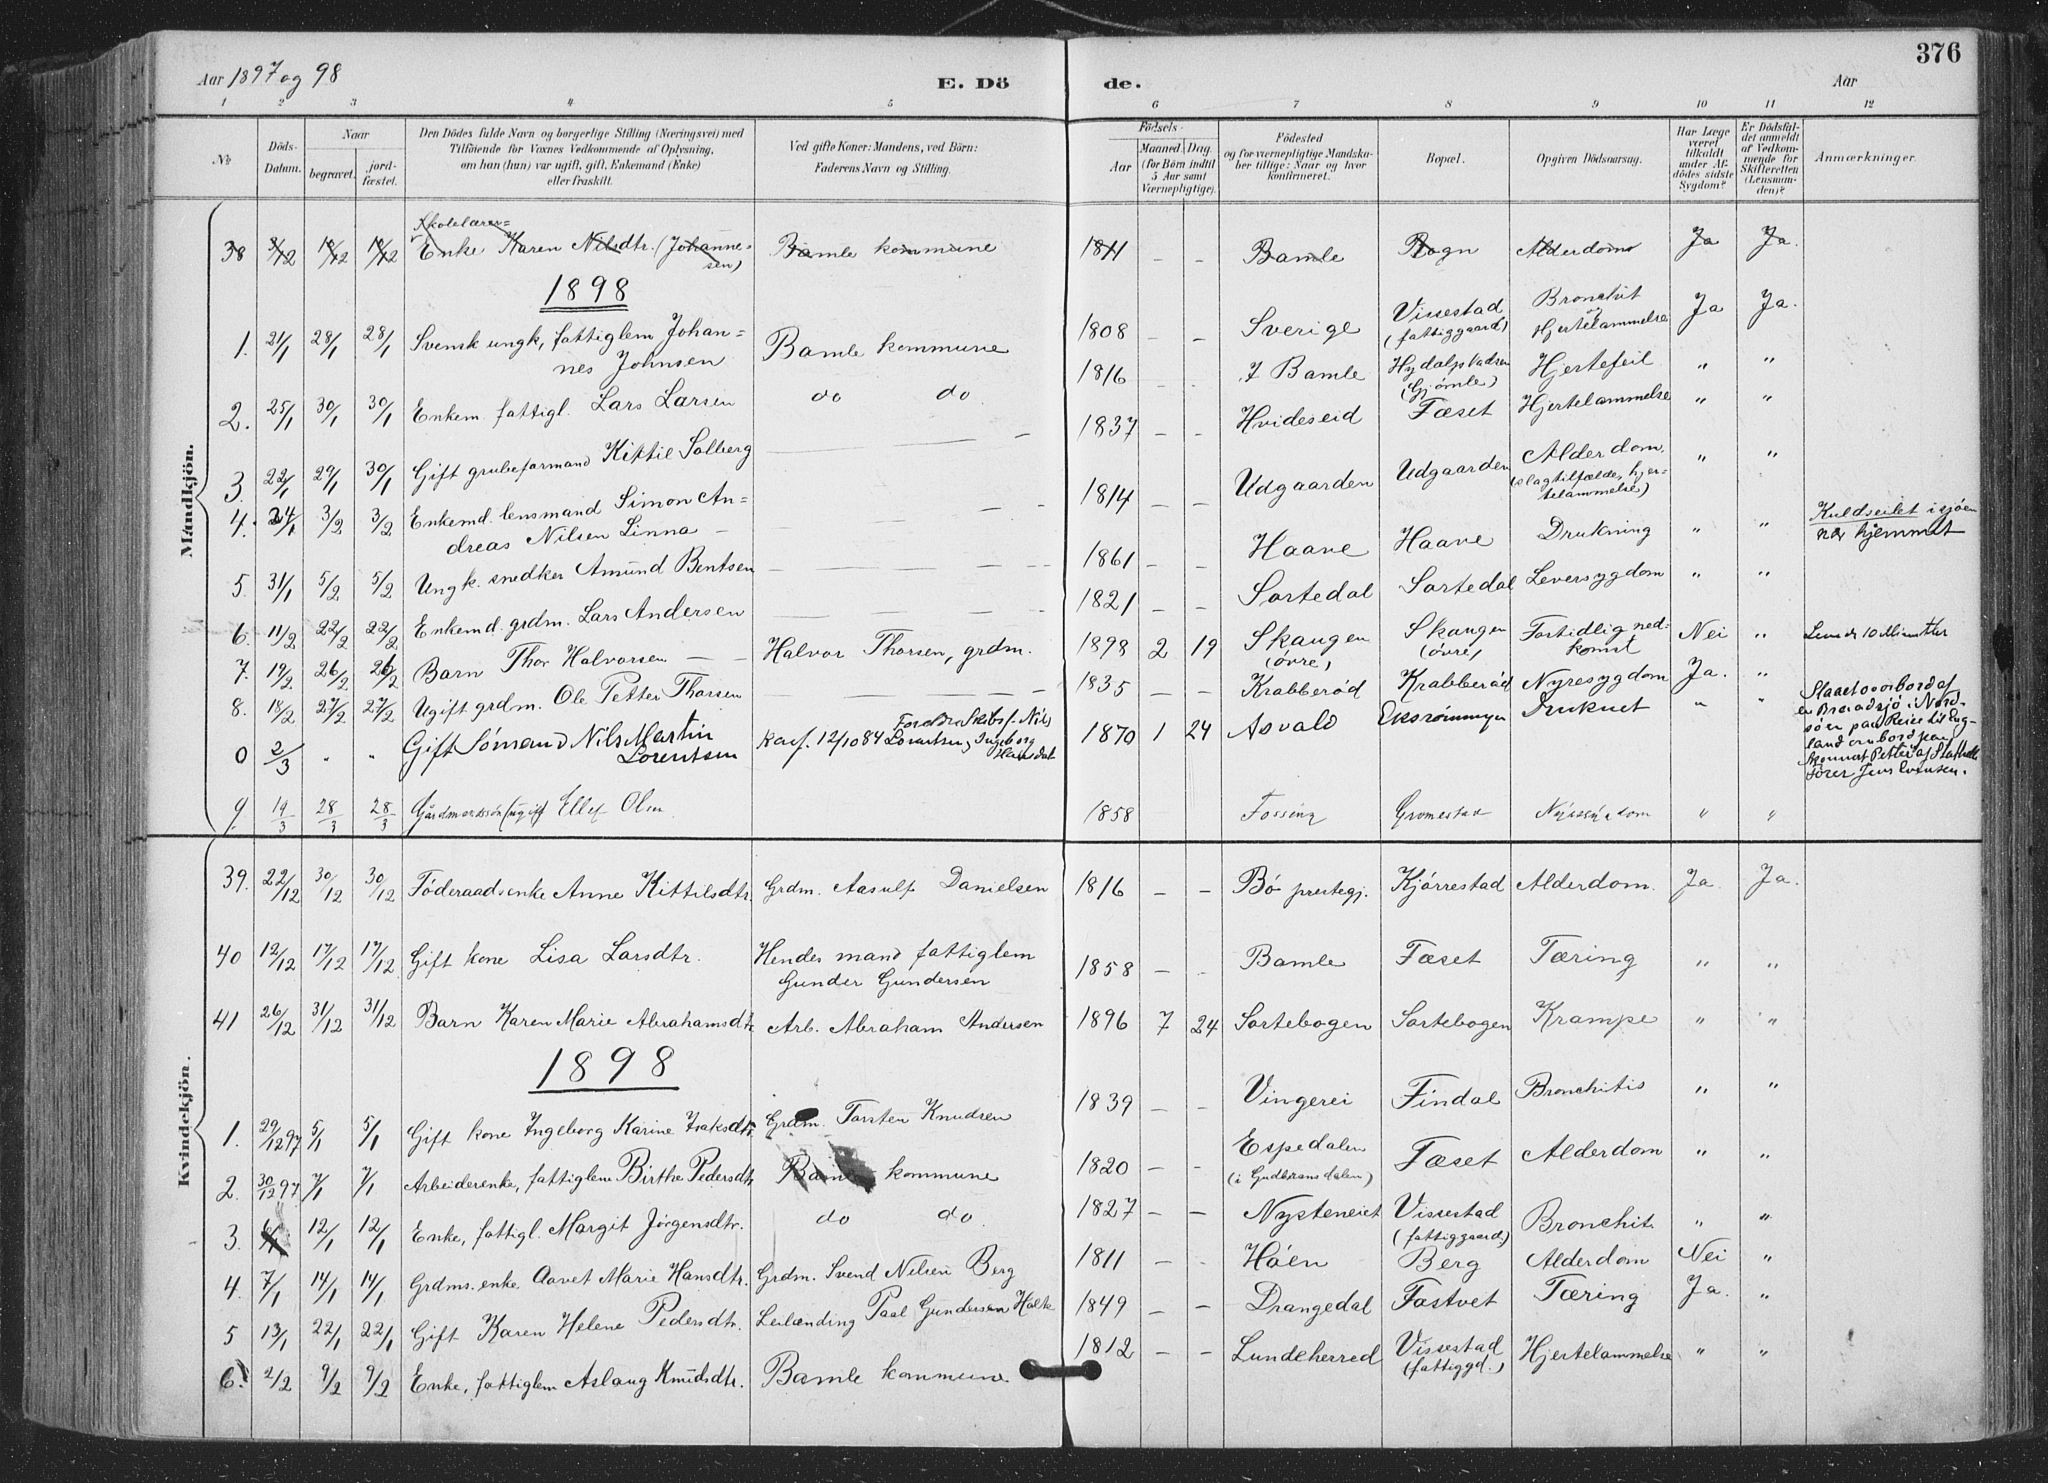 376
Aar 1897 og 98
E. Dö
de.
Aar
1 2 3 4 5 6 7 8 9 10 11 12
No
Döds-Datum.
Naar
begravet.
jord-fæstet.
Den Dödes fulde Navn og borgerlige Stilling (Næringsvei) med
Tilföiende for Voxnes Vedkommende af Oplysning,
om han (hun) var ugift, gift, Enkemand (Enke)
eller fraskilt.
Ved gifte Koner: Mandens, ved Börn:
Faderens Navn og Stilling.
Födsels-
Aar
Maaned. Dag.
(for Börn indtil
5 Aar samt
Værnepligtige).
Födested
og for værnepligtige Mandska-
ber tillige: Naar og hvor
konfirmeret.
Bopæl.
Opgiven Dödsaarsag.
Har Læge
været
tilkaldt
under Af-
dödes sidste
Sygdom?
Er Dödsfal-
det anmeldt
af Vedkom-
mende for
Skifteretten
(Lensman-
den)?
Anmærkninger.
Mandkjön.
Skolelærer-
38 3/12 18/12 18/12 Enke Karen Nilsdtr. (Johanne-
sen) Bamle kommune 1811 - - Bamle Rogn Alderdom Ja Ja.
1898
1. 21/1 28/1 28/1 Svensk ungk, fattiglem Johan=
nes Johnsen Bamle kommune 1808 - - Sverige Vissestad
(fattiggaard) Bronchit
og Hjertelammelse Ja Ja.
2. 25/1 30/1 30/1 Enkem. fattigl. Lars Larsen do do 1816 - - I Bamle Hydalpladsen
(Gjömle) Hjertefeil " "
3. 22/1 29/1 30/1 Gift grubeformand Kittil Solberg 1837 - - Hvideseid Fæset Hjertelammelse " "
4. 24/1 3/2 3/2 Enkemd. lensmand Simon An=
dreas Nilsen Linna 1814 - - Udgaarden Udgaarden Alderdom
(slagtilfælde, hjer-
telammelse) " "
5 31/1 5/2 5/2 Ungk. snedker Amund Bentsen 1861 - - Haave Haave Drukning " " Kuldseilet i sjöen
nær hjemmet
6. 11/2 22/2 22/2 Enkemd. grdm. Lars Andersen 1821 - - Sortedal Sortedal Leversygdom " "
7. 19/2 26/2 26/2 Barn Thor Halvorsen Halvor Thorsen, grdm. 1898 2 19 Skaugen
(övre) Skaugen
(övre) Fortidlig ned-
komst Nei " Levede 10 Minutter
8. 18/2 27/2 27/2 Ugift grdm. Ole Petter Thorsen 1835 - - Krabberöd Krabberöd Nyresygdom Ja. "
0 2/3 " " Gift Sömand Nils Martin
Lorentsen Konf. 12/10 84 Nils
Lorentsen, Ingeborg
Hansdat 1870 1 24 Asvald Eksrömmyen Druknet " " Slaaet overbord af
en Braadsjö i Nord-
söen paa Reise til Eng-
land ombord paa
Petter af Stathelle
Förer Jens Evensen.
9. 19/3 28/3 28/3 Gårdmandssön (ugift) Ellef Olsen 1858 Fossing Gromestad Nyresygdom " "
Kvindekjön.
39. 22/12 30/12 30/12 Föderaadsenke Anne Kittilsdtr. Grdm. Aasulf Danielsen 1816 - - Bö prestegj. Kjörrestad Alderdom. Ja. Ja.
40 12/12 17/12 17/12 Gift kone Lisa Larsdtr. Hendes mand fattiglem
Gunder Gundersen 1858 - - Bamle Fæset Tæring " "
41 26/12 31/12 31/12 Barn Karen Marie Abrahamsdtr Arb. Abraham Andersen 1896 7 24 Sortebogen Sortebogen Krampe " "
1898
1. 29/12 97 5/1 5/1 Gift kone Ingeborg Karine Isaksdtr Grdm. Torsten Knudsen 1839 - - Vingerei Findal Bronchitis " "
2. 30/12 97 7/1 7/1 Arbeiderenke, fattiglem Birthe Pedersdtr Bamle kommune 1820 - - Espedalen
(i Gudbransdalen) Fæset Alderdom " "
3. 6/1 12/1 12/1 Enke, fattigl. Margit Jörgensdtr. do do 1827 - - Nysteneiet Vissestad
(fattiggaard.) Bronchit " "
4. 7/1 14/1 14/1 Grdms. enke Aavet Marie Hansdtr. Grdm. Svend Nilsen Berg 1811 - - Höen Berg Alderdom Nei "
5 13/1 22/1 22/1 Gift Karen Helene Pedersdtr. Leilænding Paal Gundersen Holte 1849 - - Drangedal Fostvet Tæring Ja. "
6. 2/2 9/2 9/2 Enke, fattiglem Aslaug Knudsdtr. Bamle kommune 1812 - - Lundeherred Vissestad
(fattiggd.) Hjertelammelse " "